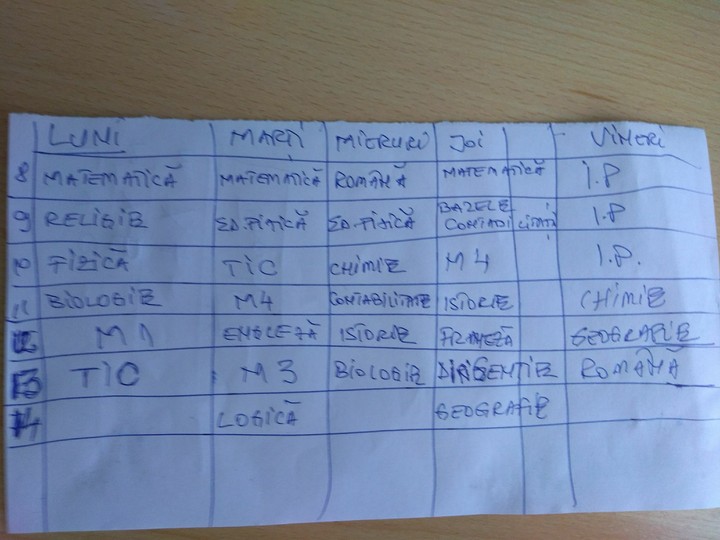 LUNI MARȚI MIERURI JOI VINERI
8 MATEMATICĂ MATEMATICĂ ROMÂNĂ MATEMATICĂ I.P
9 RELIGIE ED.FIZICĂ ED.FIZICĂ BAZELE I.P
CONTABILITĂȚII
10 FIZICĂ TIC CHIMIE M4 I.P.
11 BIOLOGIE M4 CONTABILITATE ISTORIE CHIMIE
12 M1 ENGLEZĂ ISTORIE FRANCEZĂ GEOGRAFIE
13 TIC M3 BIOLOGIE DIRIGENȚIE ROMÂNĂ
14 LOGICĂ GEOGRAFIE